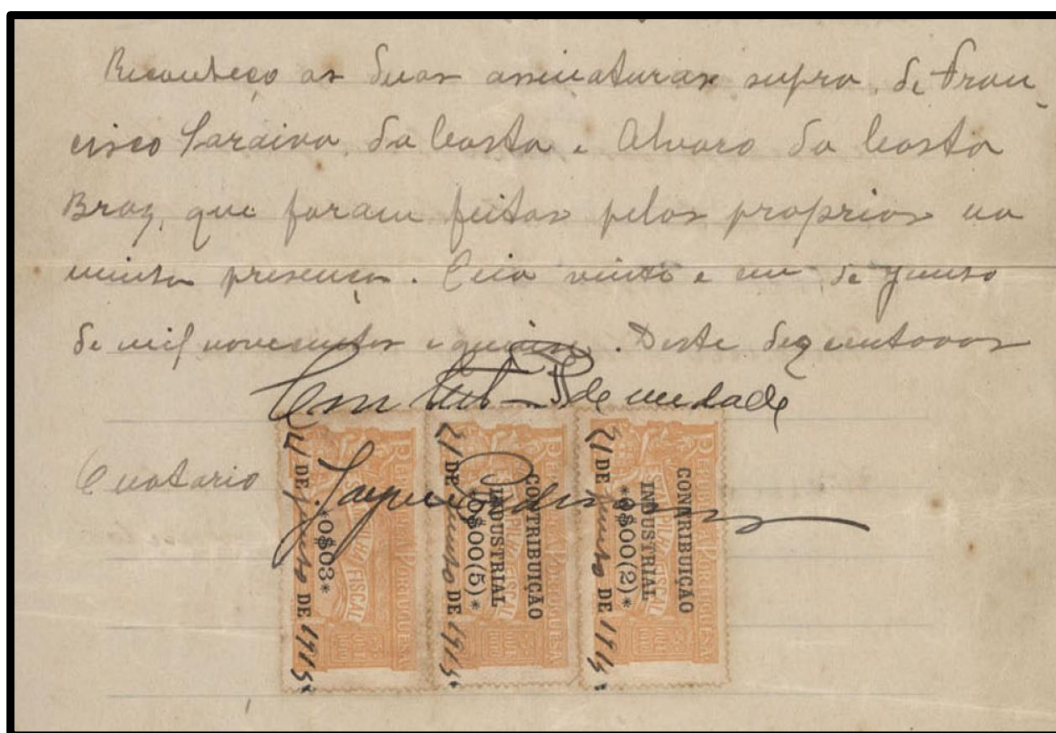 Reconheço as duas assinaturas supra, de Fran-
cisco Saraiva da Costa e Alvaro da Costa
Braz, que foram feitas pelos proprios na
minha presença. Ceia vinte e um de Junho
de mil novecentos e quinze. Deste dez centavos
Em test de verdade
O notario
REPUBLICA PORTUGUESA
ESTAMPILHA FISCAL
*0$03*
21 DE Junho DE 1915
REPUBLICA PORTUGUESA
ESTAMPILHA FISCAL
CONTRIBUIÇÃO
INDUSTRIAL
*0$00(5)*
21 DE Junho DE 1915
REPUBLICA PORTUGUESA
ESTAMPILHA FISCAL
CONTRIBUIÇÃO
INDUSTRIAL
*0$00(2)*
21 DE Junho DE 1915